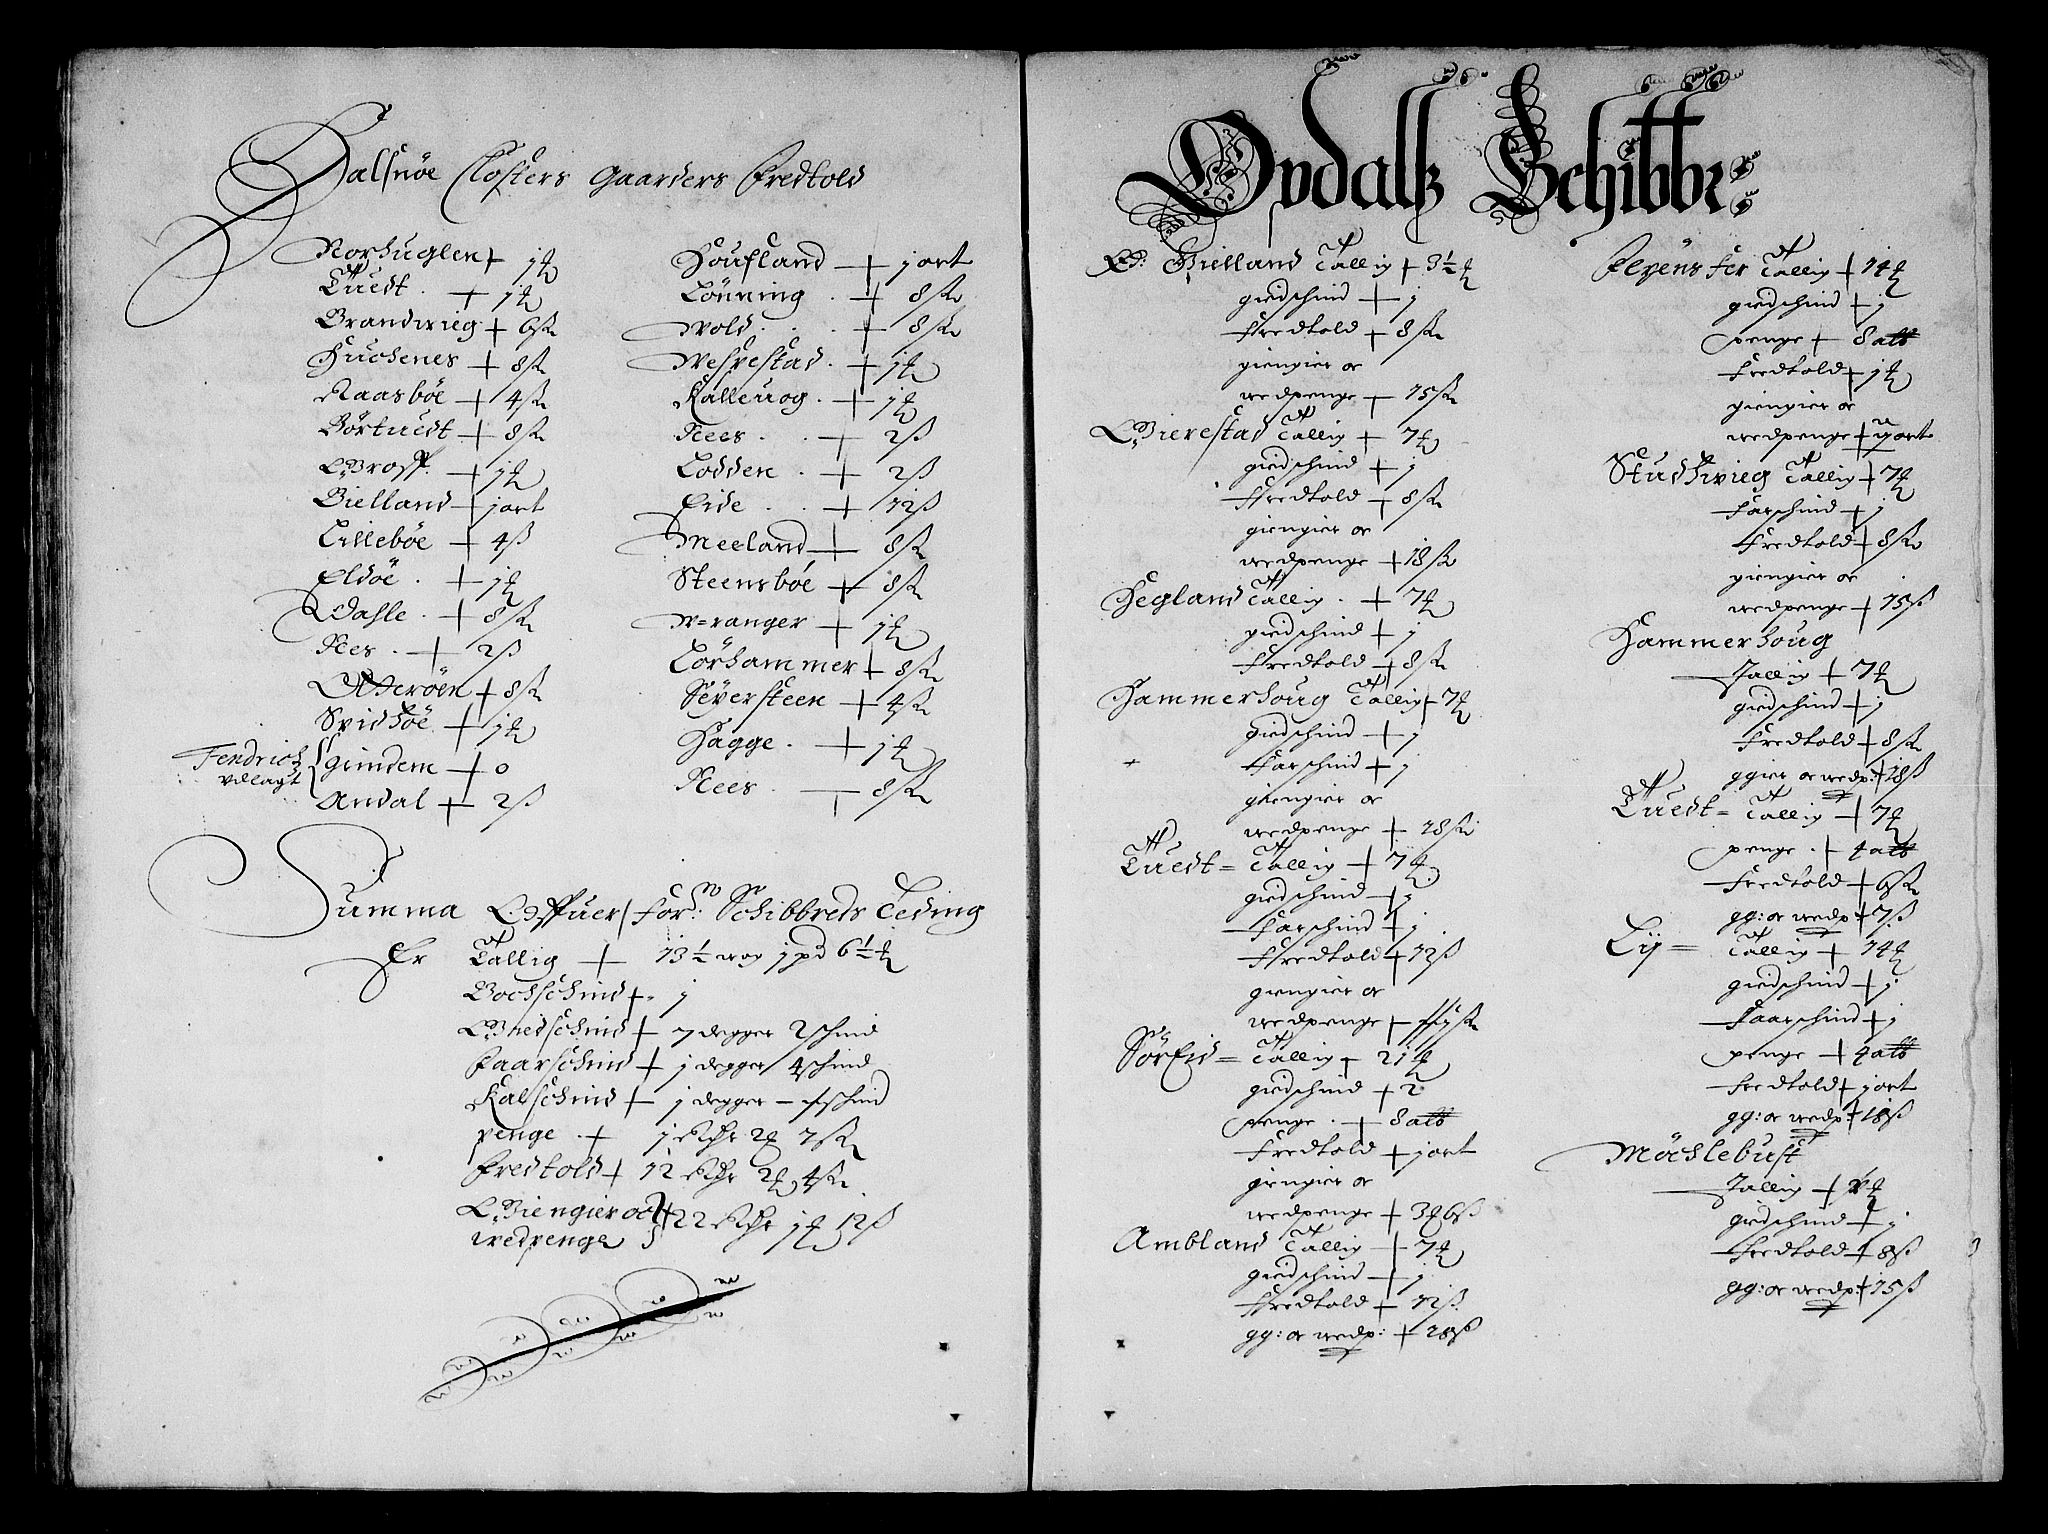 Halsnøe Closters gaarders Fredtold
Norhuglen + j℔
Tuedt . + j℔
Brandwieg + 6sk
Huchenes + 8sk
Raasbøe + 4sk
Børtuedt + 8sk
Groff . + j℔
Bielland + jort
Lillebøe + 4ß
Eldøe . + j℔
Dahle . + 8sk
Nees . + 2ß
Otterøen + 8sk
Spidsøe + j℔
Fendrich
vdlagt
gimdem + 0
Andal + 2ß
Houfland + jort
Lønning . + 8sk
Wold . . + 8sk
Wespestad . + j℔
Kalleuog . + j℔
Nees . . + 2ß
Lodden . + 2ß
Eide . . + 12ß
Meeland + 8sk
Steensbøe + 8sk
W=ranger + j℔
Lørhammer + 8sk
Seyersteen + 4sk
Hagge . + j℔
Nees . + 8sk
Summa Offuer forᵉ: Schibbreds Teding
Er Tallig + 13½ wog j pd 6½ ℔
Bochschind + - j
Giedschind + 7 degger 2 schind
Faarschind + j degger 4 schind
Kalschind + j degger - schind
penge . + j Rdr 2℔ 7sk
Fredtold + 12 Rdr 2℔ 4sk
Giengier oc
wedpenge
22 Rdr j℔ 12ß
Opdalß Schibbr:
Ed: Gielland Tallig + 3½ ℔
giedschind + j
Fredtold + 8sk
giengier oc
wedpenge + 15sk
Gierestad Tallig + 7℔
giedschind + j
Fredtold + 8sk
giengier oc
wedpenge + 18sk
Hegland Tallig . + 7℔
giedschind + j
Fredtold + 8sk
Hammerhoug Tallig + 7℔
giedschind + j
Farschind + j
giengier oc
wedpenge + 28sk
Tuedt = Tallig + 7℔
giedschind + j
Farschind + j
Fredtold + 12ß
giengier oc
wedpenge +
Sør Eid = Tallig + 21℔
giedschind + 2
penge . + 8 alb
Fredtold + jort
giengier oc
wedpenge + 3℔ 6ß
Ambland Tallig + 7℔
giedschind + j
Fredtold + 12ß
gg: oc wedp: + 28ß
Flyens for Tallig + 14℔
giedschind + j
penge + 8 alb
Fredtold + j℔
giengier oc
wedpenge + ijort
Studhwieg Tallig + 7℔
Farschind + j
Fredtold + 8sk
giengier oc
wedpenge + 15ß
Hammerhoug
Tallig + 7℔
giedschind + j
Fredtold + 8sk
ggier oc wedp: + 18ß
Tuedt = Tallig + 7℔
penge . + 4 alb
Fredtold + 6sk
gg: oc wedp: + 7ß
Lij = Tallig + 14℔
giedschind + j
Faarschind + j
penge + 4 alb
Fredtold + jort
gg: oc wedp: + 18ß
Møchlebust
Tallig +
giedschind + j
Fredtold + 8ß
gg: oc wedp: + 15ß